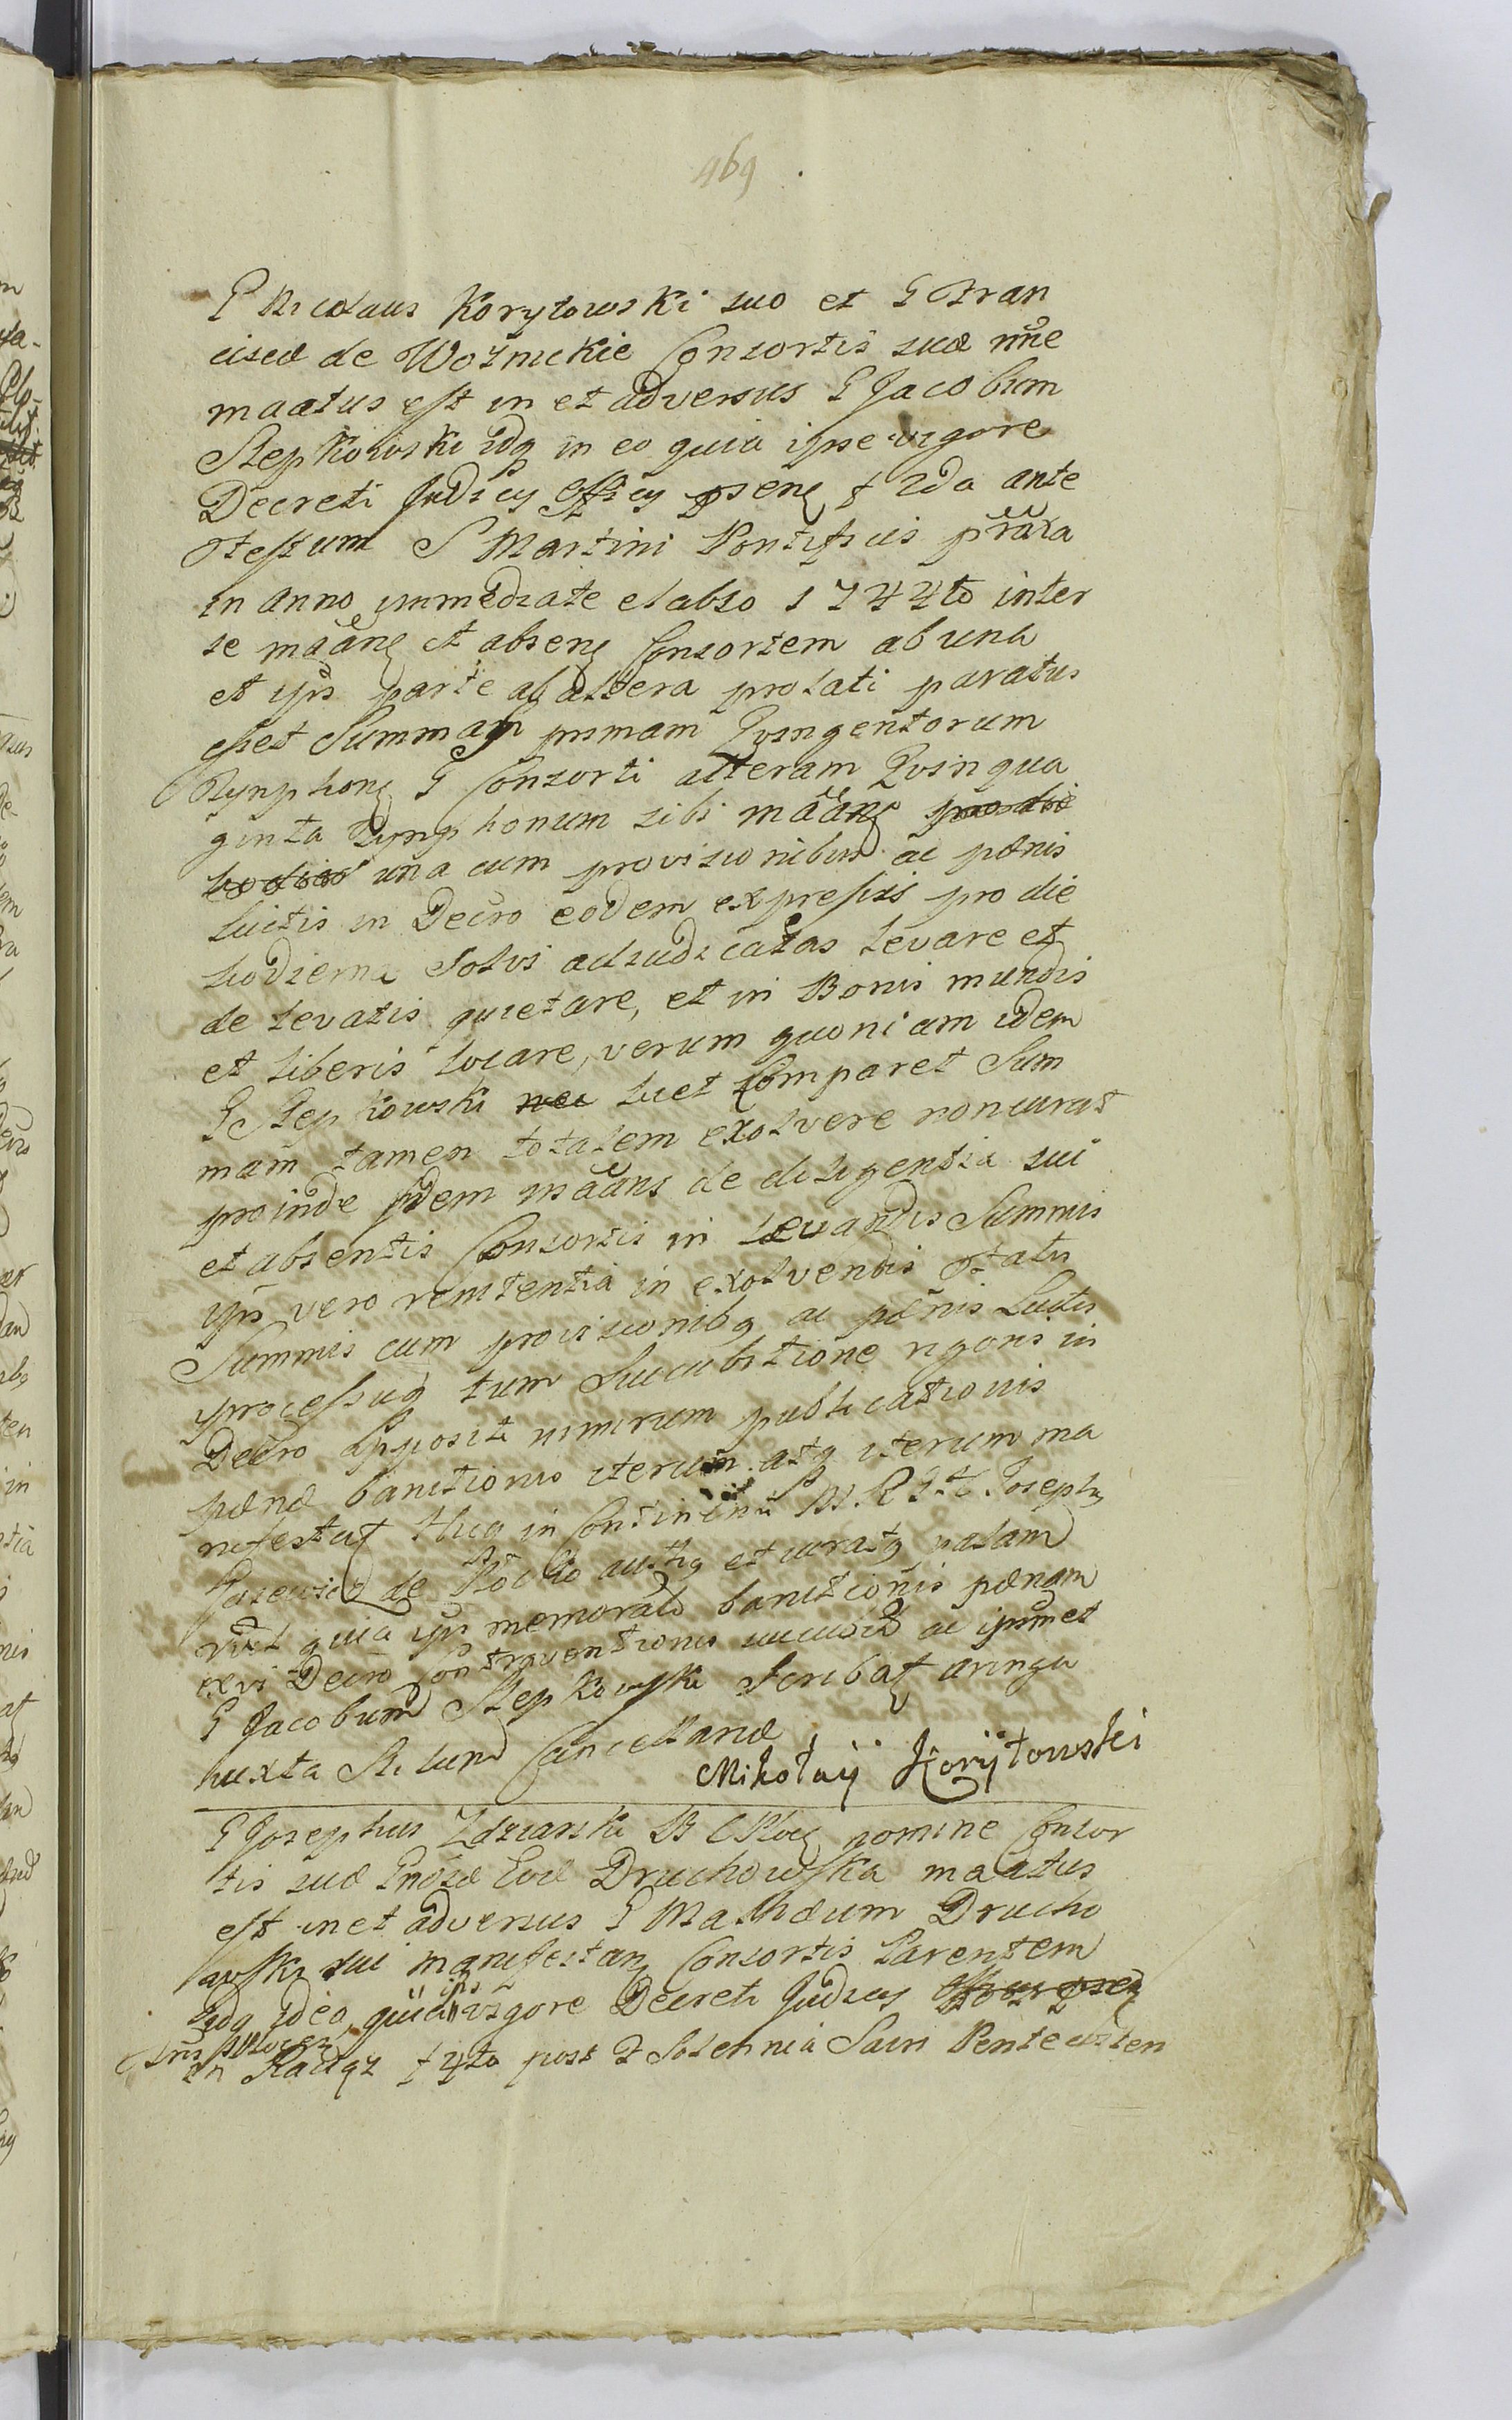 469
G Nicolaus Korytowski suo et G Fran
ciscæ de Woznickie Consortis suæ nne
maatus est in et adversus G Jacobum
Stepkowski idq in eo quia ipse vigore
Decreti Judicy Officy psenq f 2da ante
Festum S Martini Pontificis prãxa
in anno immediate elabso 1744to inter
se mãanq et absenq Consortem ab una
et ips parte ab altera prolati paratus
esset Summam primam Qvingentorum
Tynphonq G Consorti alteram Qvinqua
ginta Tynphonum sibi mãanq pro die
hodier una cum provisionibus ac pænis
luitis in Decro eodem expressis pro die
hodierna Solvi adiudicatas levare et
de levatis quietare, et in Bonis mundis
et liberis locare, verum quoniam idem
G Stepkowski nec licet Comparet Sum
mam tamen totalem exolvere non curat
proinde idem mãans de diligentia sui
et absentis Consortis in levandis Summis
ips vero renitentia in exolvendis ftatis
Summis cum provisionibq ac pænis Luitis
processuq tum Succubitione rigoris in
Decro appositi nimirum publicationis
pænæ banitionis iterum atq iterum ma
nifestat Huq in Continenti M. R Josephq
de auth et iuratq palam
quia ips memorata banitionis pænam
ex vi Decro Contraventionis ac ipsmet
G Jacobum Stepkowski Scribat aringa
iuxta Stilum Cancellariæ
Mikołaij Korijtowski
G Josephus Zdziarski B C Ploc nomine Consor
tis suæ Gnosæ Evæ Druchowska maatus
est in et adversus G Mathæum Drucho
wski sui manifestanq Consortis Parentem
idq ideo, quia ips vigore Decreti Judicy Officy psen
Tris
in Raciąz f 4ta post F Solennia Sacri Pentecosten